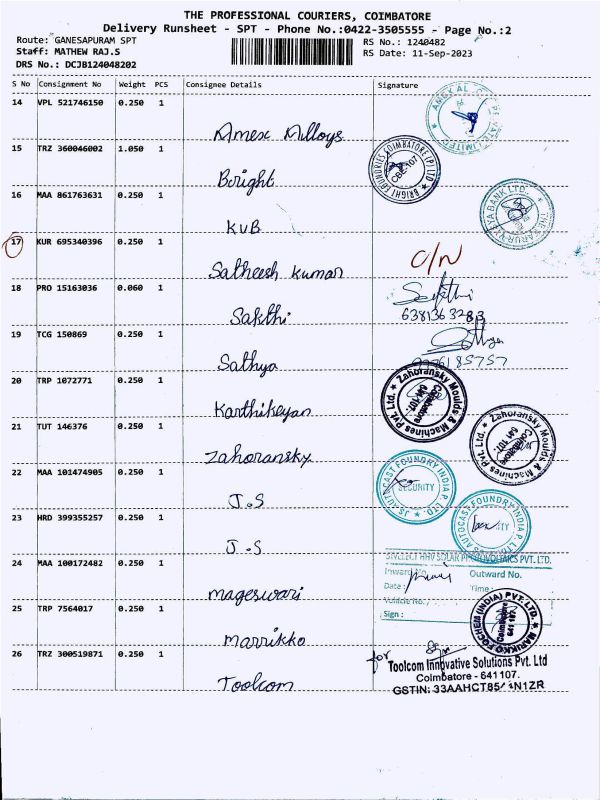 THE PROFESSIONAL COURIERS, COIMBATORE
Delivery Runsheet - SPT - Phone No.:0422-3505555 - Page No.:2
Route: GANESAPURAM SPT
Staff: MATHEW RAJ.S
DRS No.: DCJB124048202
RS No.: 1240482
RS Date: 11-Sep-2023
S No Consignment No Weight PCS Consignee Details Signature
14 VPL 521746150 0.250 1
Amex Alloys
15 TRZ 360046002 1.050 1
Bright
BRIGHT FOUNDRIES COIMBATORE (P) LTD
CBE-107
16 MAA 861763631 0.250 1
KVB
THE KARUR VYSYA BANK LTD.
17 KUR 695340396 0.250 1
Satheesh Kumar
18 PRO 15163036 0.060 1
Sakthi
Sakthi
6381363283
19 TCG 150869 0.250 1
Sathya
Sathya
20 TRP 1072771 0.250 1
Karthikeyan
Zahoransky Moulds & Machines Pvt. Ltd.
Coimbatore
641 107.
21 TUT 146376 0.250 1
Zahoransky
Zahoransky Moulds & Machines Pvt. Ltd.
Coimbatore
641 107.
22 MAA 101474905 0.250 1
J.S
JS AUTOCAST FOUNDRY INDIA P. LTD.
SECURITY
23 HRD 399355257 0.250 1
J.S
JS AUTOCAST FOUNDRY INDIA P. LTD.
24 MAA 100172482 0.250 1
mageswari
SOLAR PHOTOVOLTAICS PVT. LTD.
Inward No. Outward No.
Date : Time :
Vehicle No. :
Sign :
25 TRP 7564017 0.250 1
Marrikko
MARIKKO FOCHEM (INDIA) PVT. LTD.
Coimbatore
641 107.
26 TRZ 300519871 0.250 1
Toolcom
for
Toolcom Innovative Solutions Pvt. Ltd
Coimbatore - 641 107.